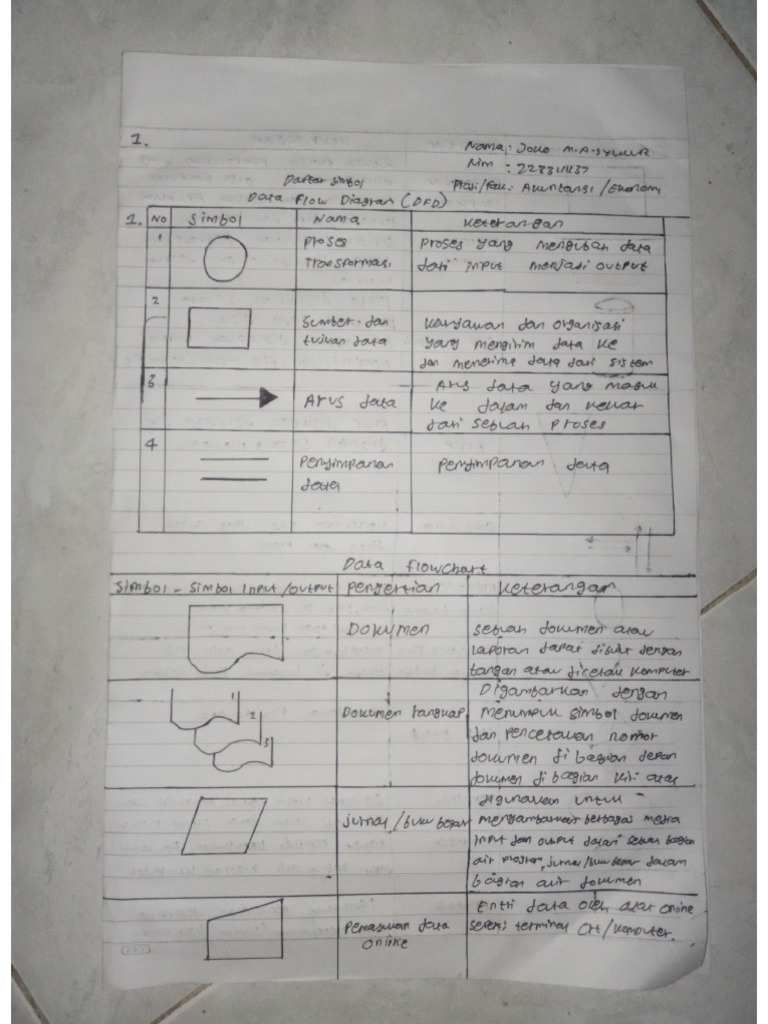 1.
Nama : Joko M.A-SYUKUR
Nim : 223311437
Daftar Simbol
Prodi/Fak : Akuntansi / Ekonomi
Data Flow Diagram (DFD)
1. NO Simbol Nama Keterangan
1 Proses Proses yang mengubah data
Transformasi dari input menjadi output
2 Sumber dan Karyawan dan Organisasi
tujuan data yang mengirim data ke
dan menerima data dari sistem
3 Arus data yang masuk
Arus data ke dalam dan keluar
dari sebuah proses
4 Penyimpanan Penyimpanan data
data
Data Flowchart
Simbol - Simbol Input /Output Pengertian Keterangan
Dokumen sebuah dokumen atau
laporan dapat ditulis dengan
tangan atau dicetak komputer
Digambarkan dengan
1 2 3 Dokumen rangkap menumpuk simbol dokumen
dan pencetakan nomor
dokumen di bagian depan
dokumen di bagian kiri atas
digunakan untuk
Jurnal / buku besar mengambarkan berbagai media
Input dan output dalam sebuah bagian
alir program, jurnal/buku besar dalam
bagian alir dokumen
Entri data oleh alat online
Pemasukan data seperti terminal CRT/Komputer.
online